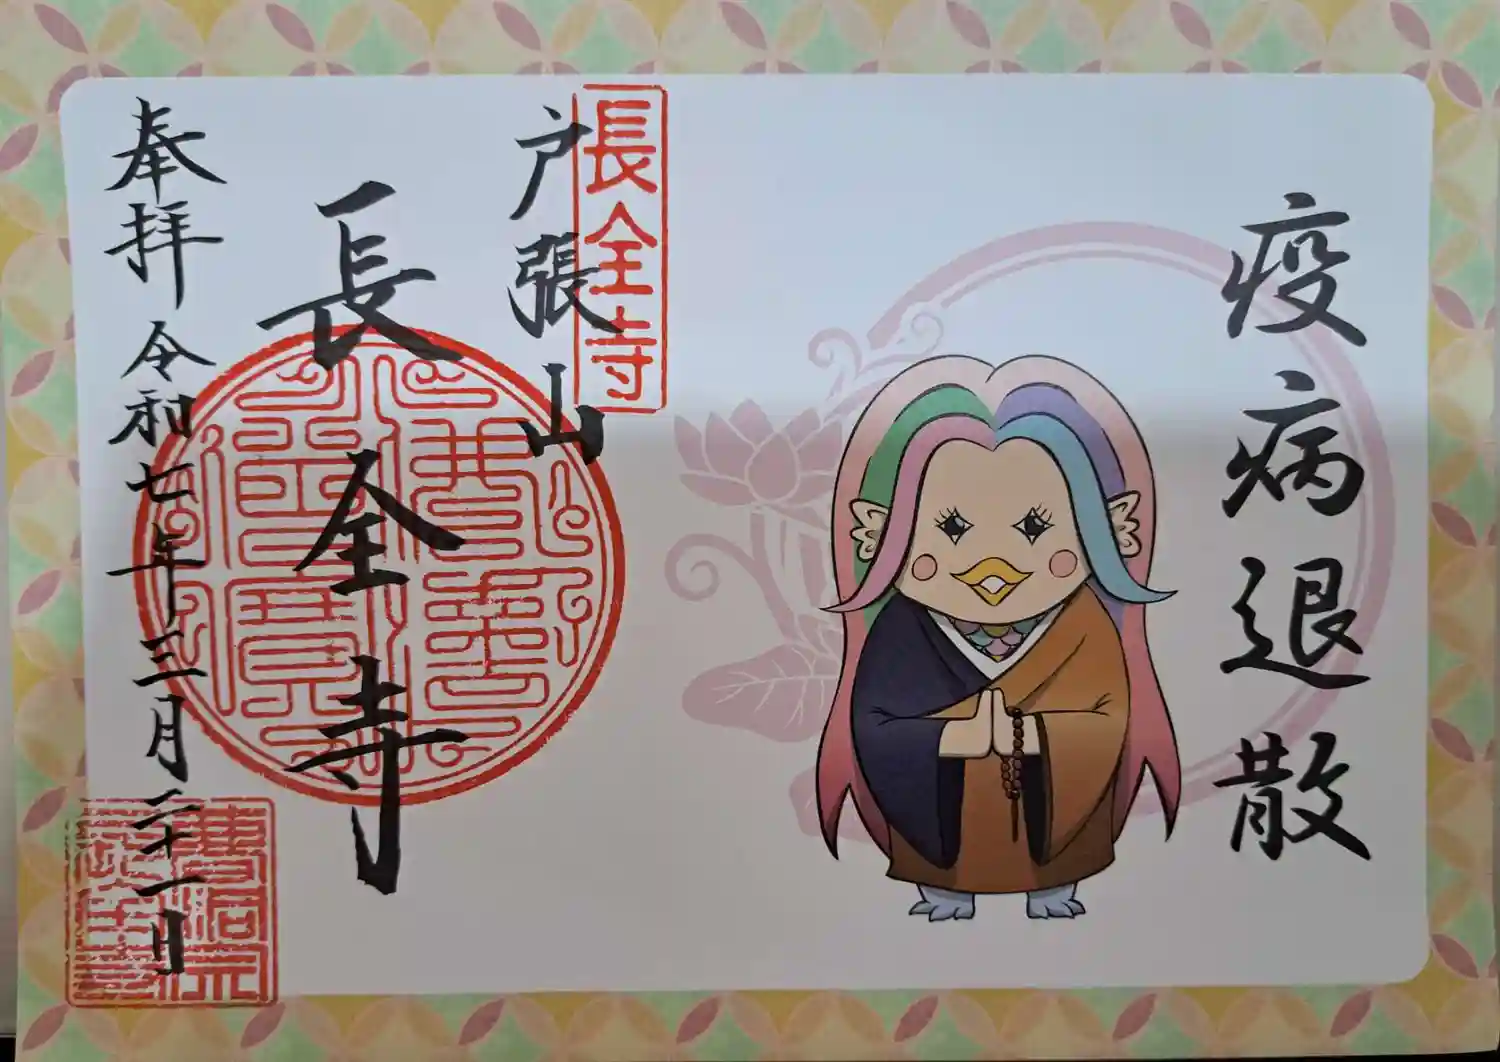 疫病退散
長全寺
戸張山
長全寺
奉拝 令和七年三月二十一日